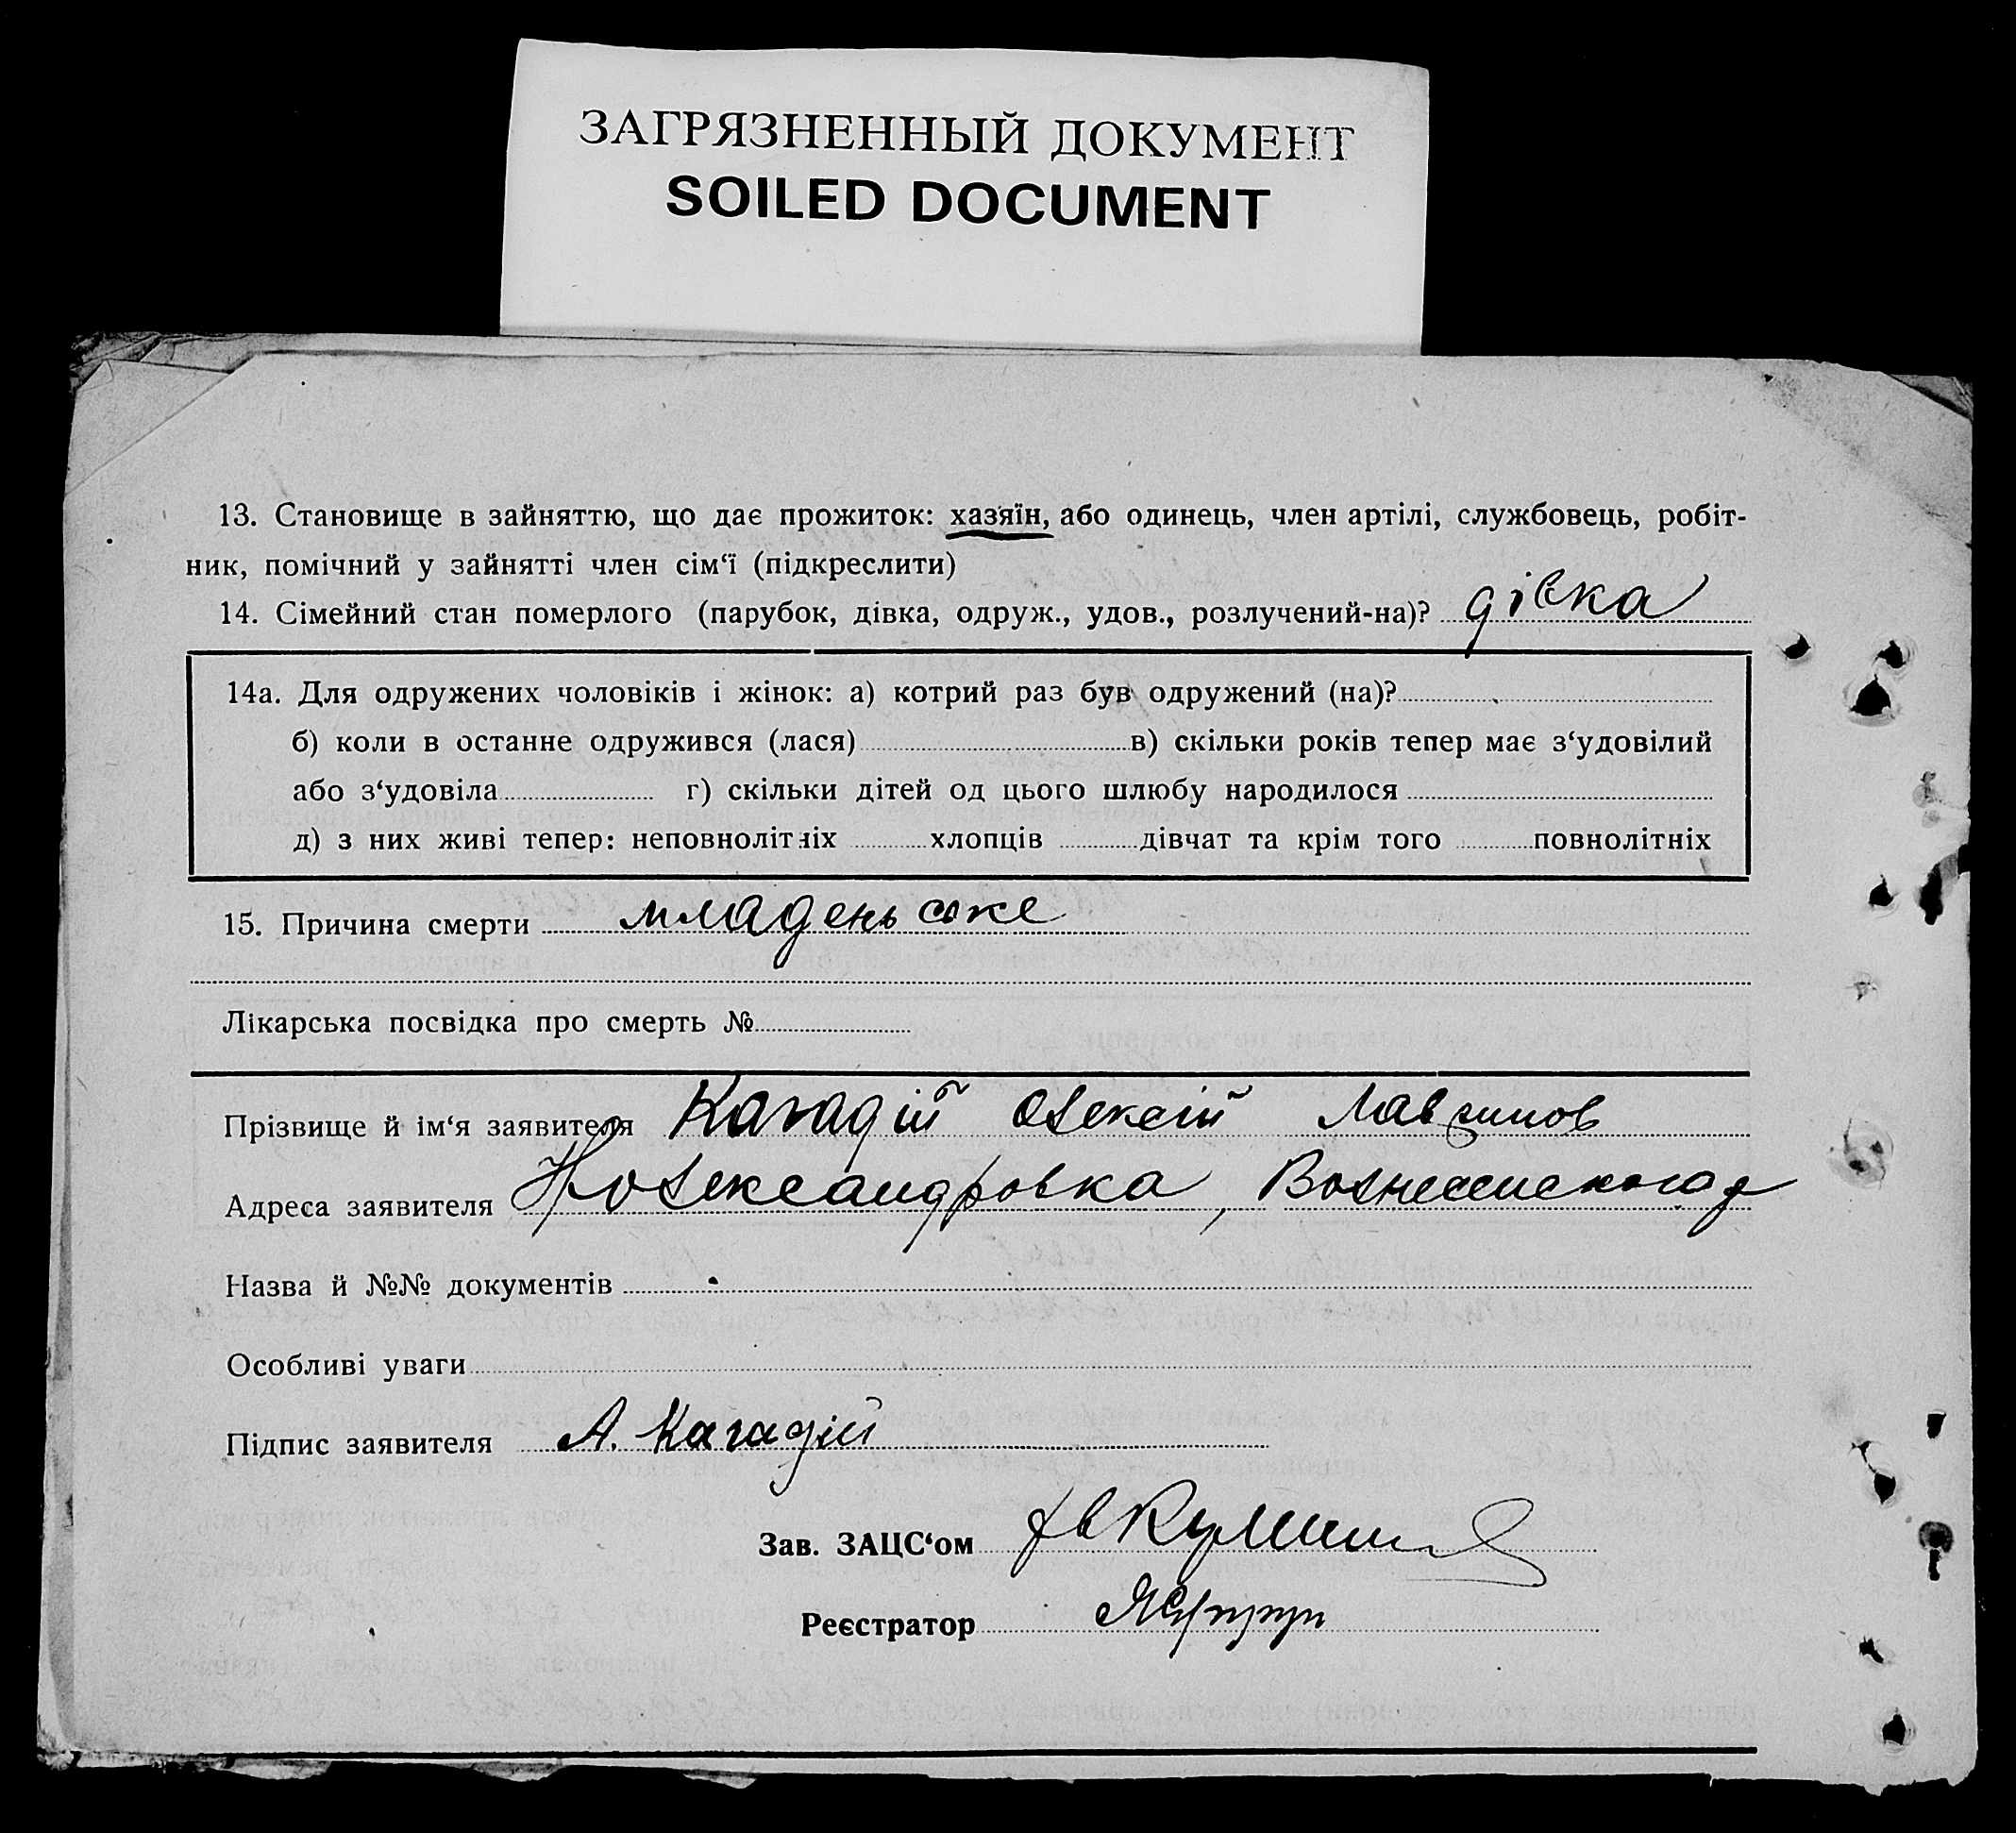 ЗАГРЯЗНЕННЫЙ ДОКУМЕНТ
SOILED DOCUMENT
13. Становище в зайняттю, що дає прожиток: хазяїн, або одинець, член артілі, службовець, робіт-
ник, помічний у зайнятті член сім‘ї (підкреслити)
14. Сімейний стан померлого (парубок, дівка, одруж., удов., розлучений-на)? дівка
14а. Для одружених чоловіків і жінок: а) котрий раз був одружений (на)?
б) коли в останнє одружився (лася) в) скільки років тепер має з‘удовілий
або з‘удовіла г) скільки дітей од цього шлюбу народилося
д) з них живі тепер: неповнолітніх хлопців дівчат та крім того повнолітніх
15. Причина смерти младеньське
Лікарська посвідка про смерть №
Прізвище й ім‘я заявителя Кагадій Олексій
Адреса заявителя
Назва й №№ документів
Особливі уваги
Підпис заявителя А. Кагадій
Зав. ЗАЦС‘ом
Реєстратор